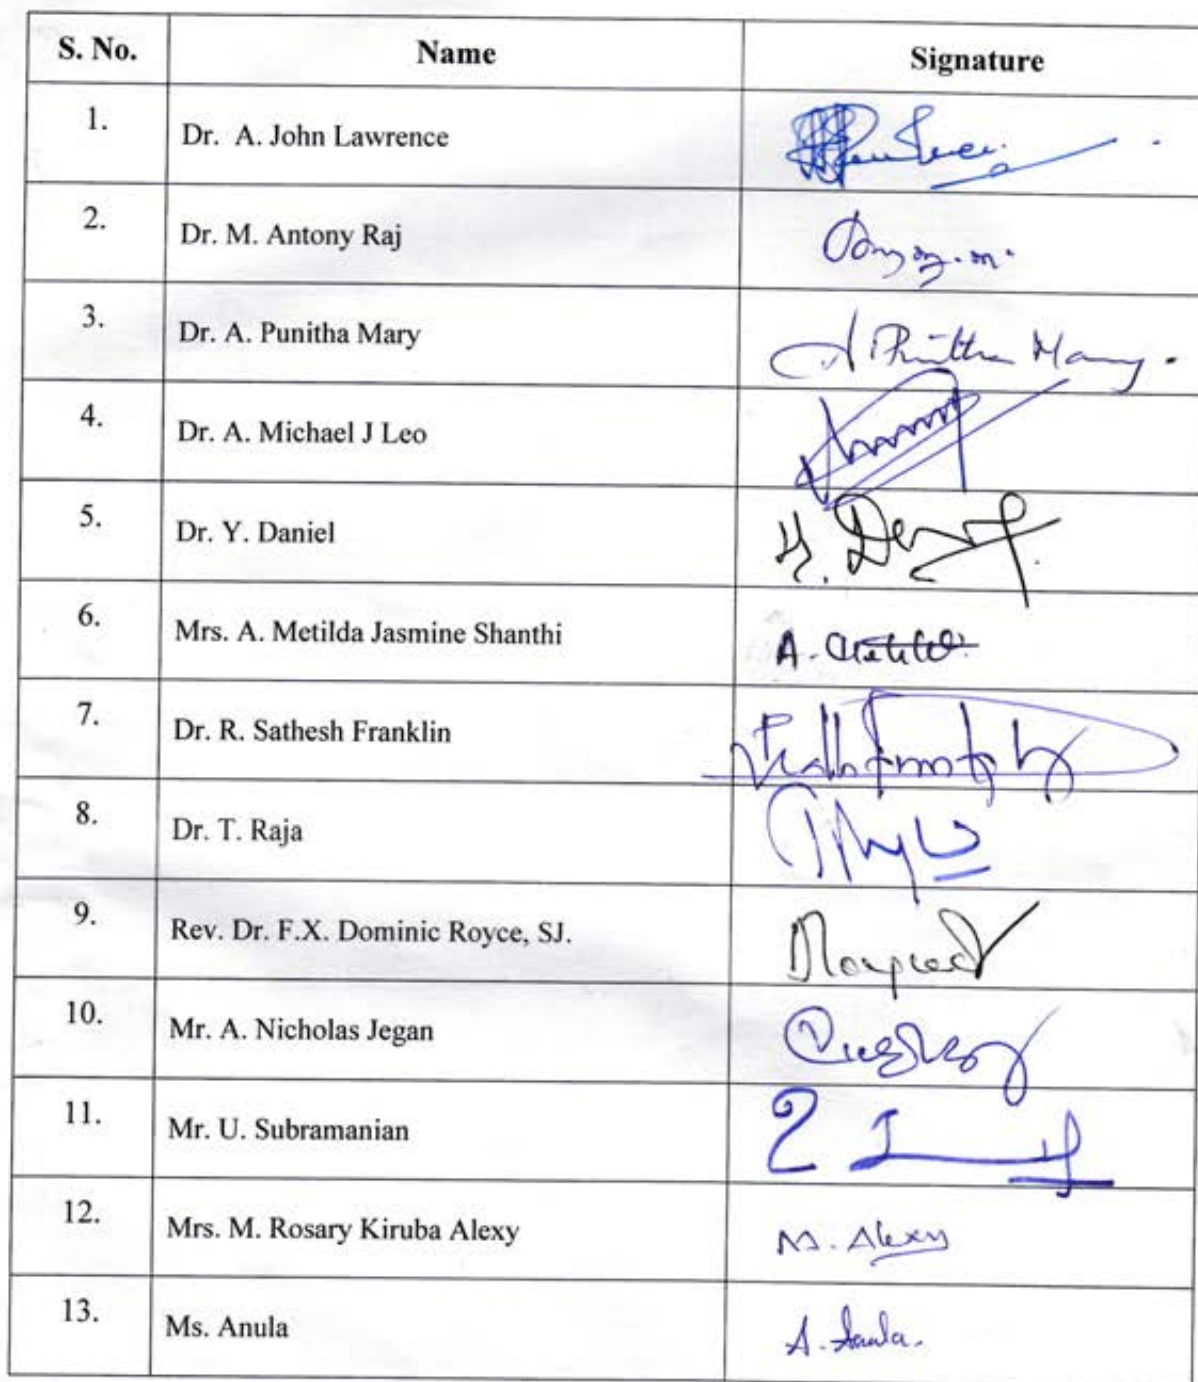 S. No. Name Signature
1. Dr. A. John Lawrence
2. Dr. M. Antony Raj
3. Dr. A. Punitha Mary A Punitha Mary.
4. Dr. A. Michael J Leo
5. Dr. Y. Daniel Y.
6. Mrs. A. Metilda Jasmine Shanthi A.
7. Dr. R. Sathesh Franklin
8. Dr. T. Raja
9. Rev. Dr. F.X. Dominic Royce, SJ.
10. Mr. A. Nicholas Jegan
11. Mr. U. Subramanian
12. Mrs. M. Rosary Kiruba Alexy M. Alexy
13. Ms. Anula A. Anula.